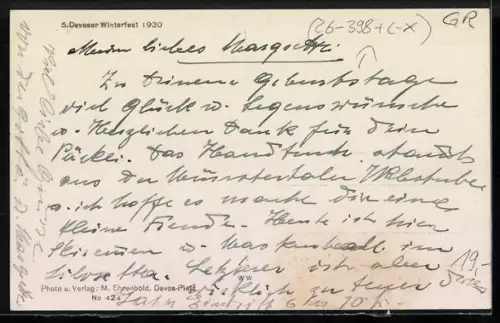 5. Davoser Winterfest 1930
(26-398+C-X)
GR
Meine liebes Margritli.
Zu Deinem Geburtstage
viel Glück u. Segenswünsche
u. Herzlichen Dank für dein
Päckli. Das Handtuch stammt
aus der Münstertaler Webstube
u. ich hoffe es mache dir eine
kleine Freude. Heute ist hier
Skirennen u. Maskenball im
ist aber
19.-
wirklich zu teuer
Eintritt 6 bis 10 fr.
Photo u. Verlag: M. Ehrenbold, Davos-Platz
No 424
WW
viel liebe Grüsse
von